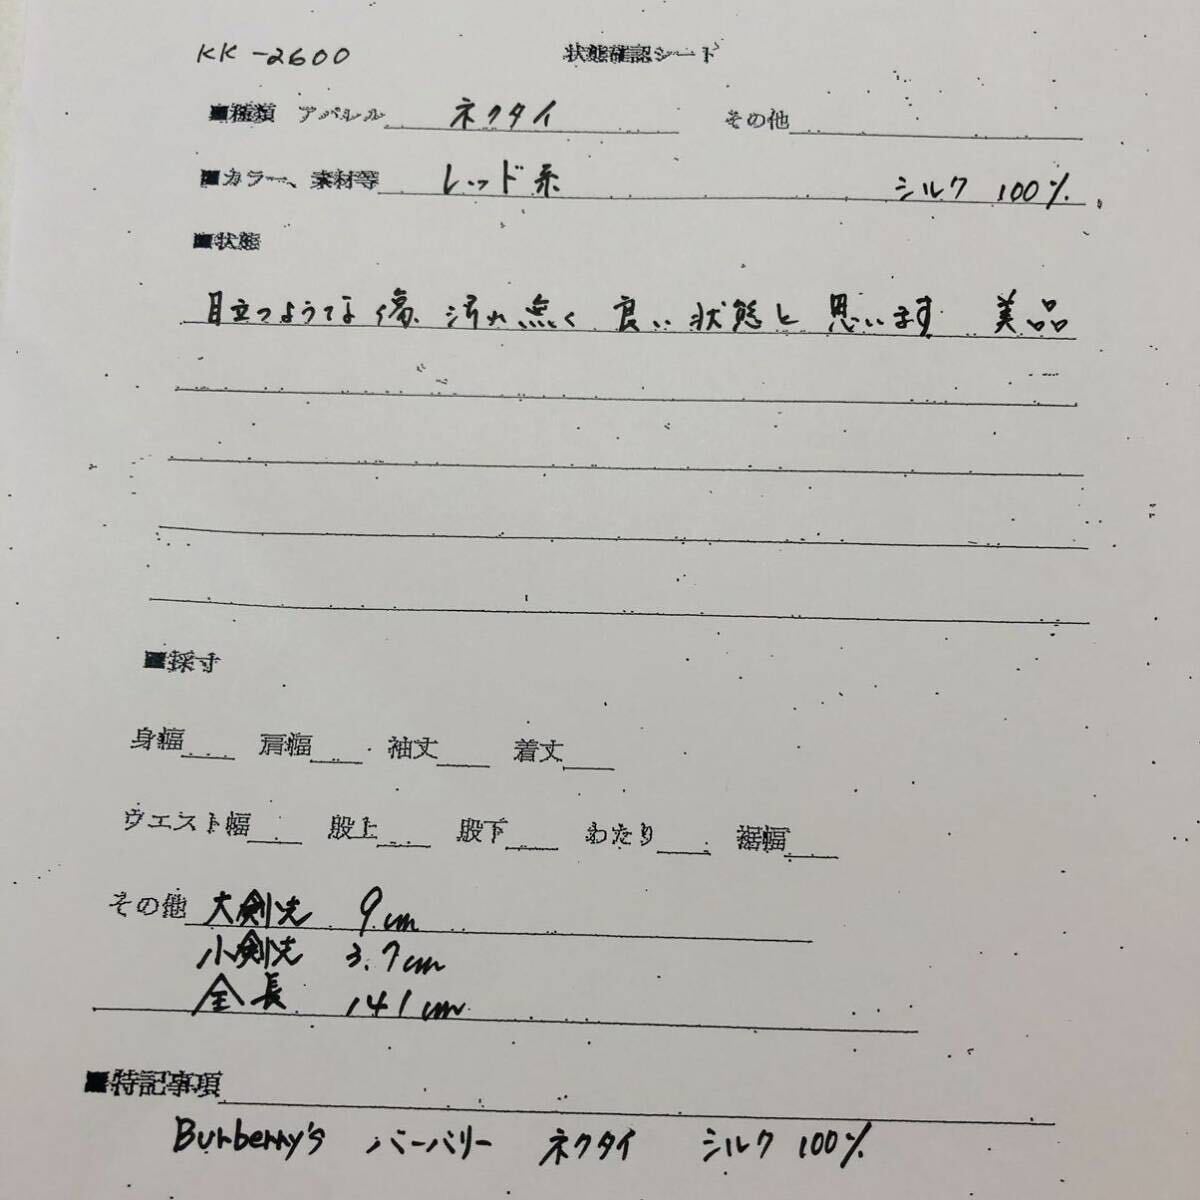 KK-2600 状態確認シート
■種類 アパレル ネクタイ その他
■カラー、素材等 レッド系 シルク 100%
■状態
目立つような傷、汚れ無く 良い状態と思います 美品
■採寸
身幅 肩幅 袖丈 着丈
ウエスト幅 股上 股下 わたり 裾幅
その他 大剣先 9cm
小剣先 3.7cm
全長 141cm
■特記事項
Burberry's バーバリー ネクタイ シルク 100%